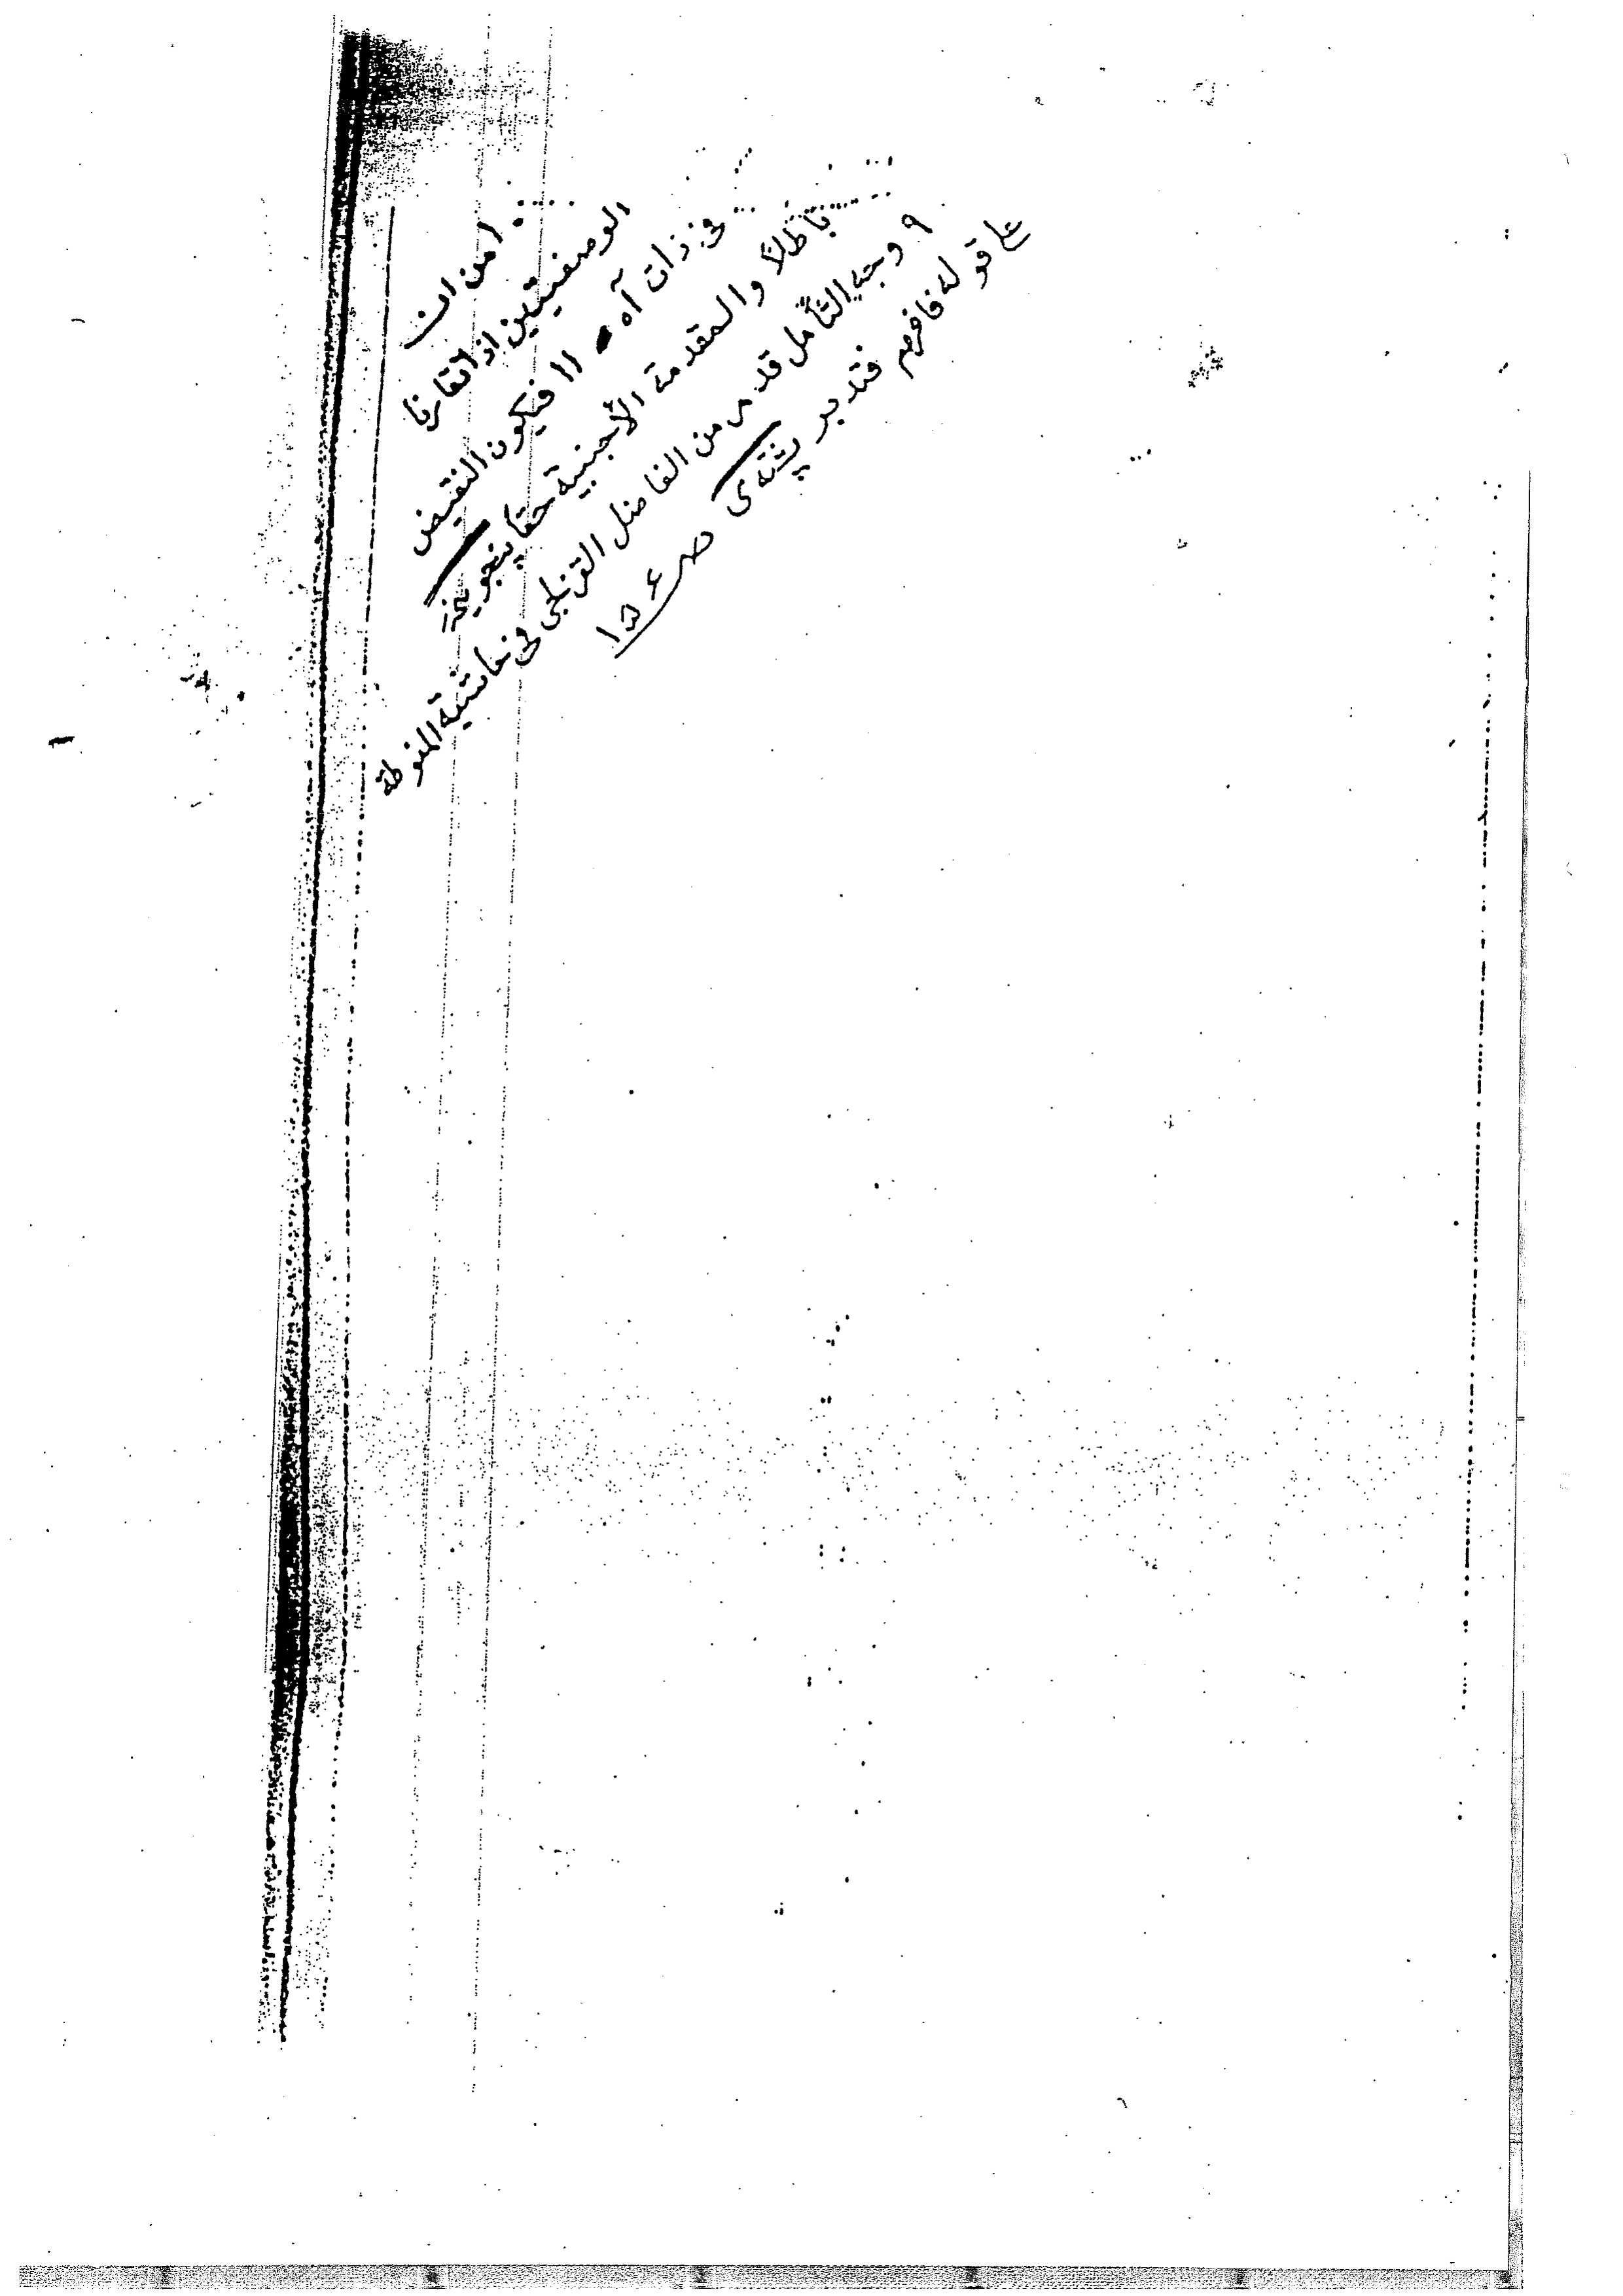 من ان
الوصفيتين اذا تقارنا
فى ذات آه ١١ فيكون النقيض
باطلاً والمقدمة الأجنبية حقا پنجوينى
٩ وجه التأمل قد مر من الفاضل القزلجى فى حاشية المنوطة
على قوله فافهم فتدبر پشتهى صـ ١٥٤